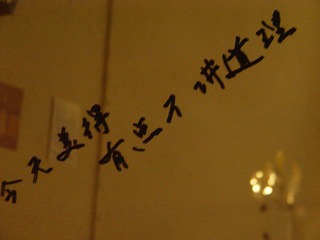 今天美得
有点不讲道理